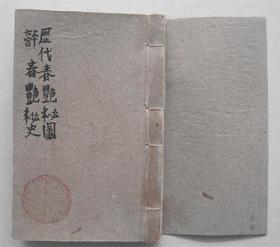 历代春艷秘圖
辭春艷秘史